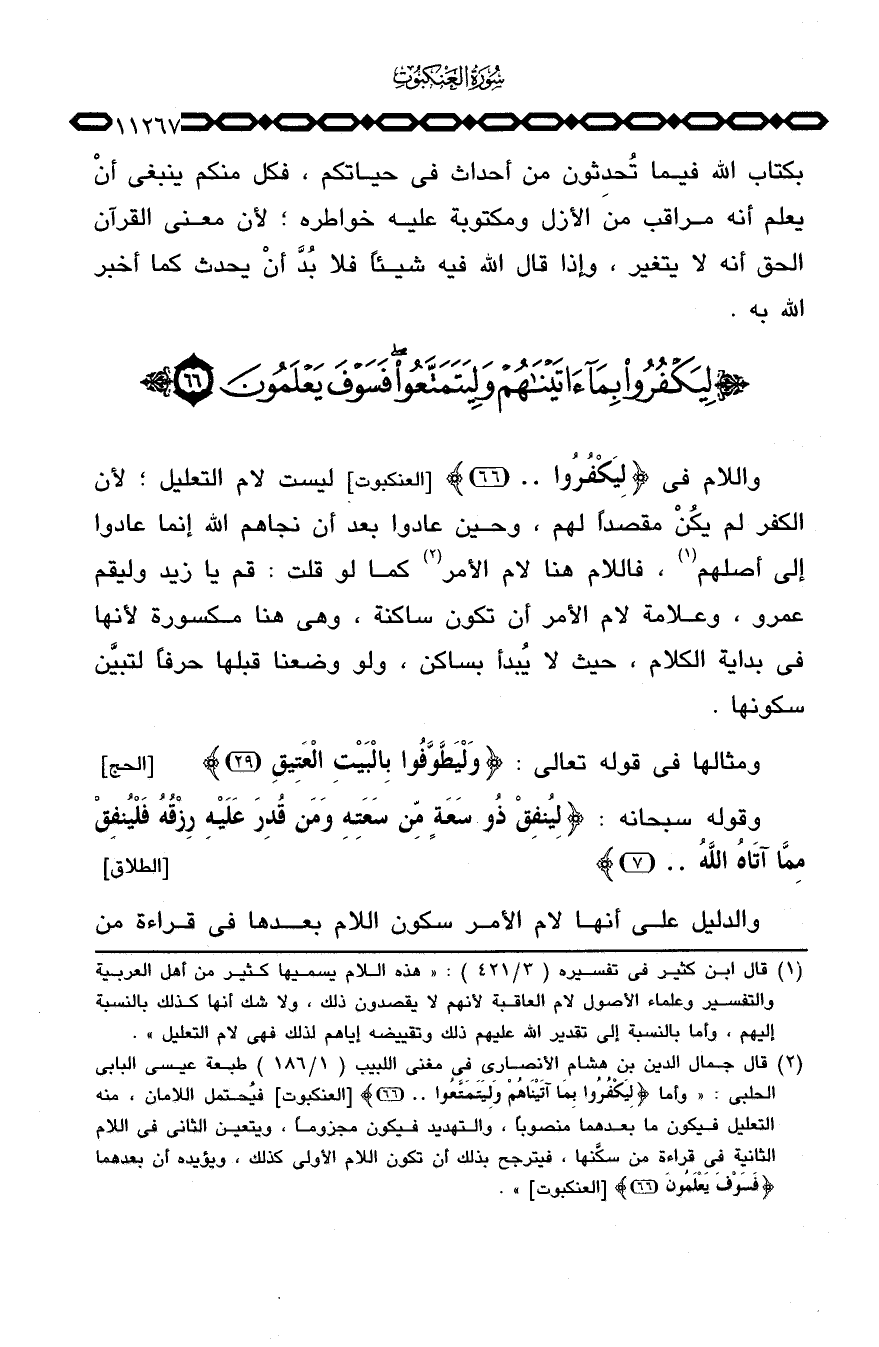 سُورَةُ العَنكبُوتِ
١١٢٦٧
بكتاب الله فيما تُحدثون من أحداث فى حياتكم ، فكل منكم ينبغى أنْ
يعلم أنه مراقب من الأزل ومكتوبة عليه خواطره ؛ لأن معنى القرآن
الحق أنه لا يتغير ، وإذا قال الله فيه شيئاً فلا بُدَّ أنْ يحدث كما أخبر
الله به .
لِيَكْفُرُواْ بِمَآ ءَاتَيْنَٰهُمْ وَلِيَتَمَتَّعُواْ ۖ فَسَوْفَ يَعْلَمُونَ ٦٦
واللام فى ﴿ لِيَكْفُرُوا .. (٦٦) ﴾ [العنكبوت] ليست لام التعليل ؛ لأن
الكفر لم يكُنْ مقصداً لهم ، وحين عادوا بعد أن نجاهم الله إنما عادوا
إلى أصلهم(١) ، فاللام هنا لام الأمر(٢) كما لو قلت : قم يا زيد وليقم
عمرو ، وعلامة لام الأمر أن تكون ساكنة ، وهى هنا مكسورة لأنها
فى بداية الكلام ، حيث لا يُبدأ بساكن ، ولو وضعنا قبلها حرفاً لتبيَّن
سكونها .
ومثالها فى قوله تعالى : ﴿ وَلْيَطَّوَّفُوا بِالْبَيْتِ الْعَتِيقِ (٢٩) ﴾ [الحج]
وقوله سبحانه : ﴿ لِيُنفِقْ ذُو سَعَةٍ مِّن سَعَتِهِ وَمَن قُدِرَ عَلَيْهِ رِزْقُهُ فَلْيُنفِقْ
مِمَّا آتَاهُ اللَّهُ .. (٧) ﴾ [الطلاق]
والدليل على أنها لام الأمر سكون اللام بعدها فى قراءة من
(١) قال ابن كثير فى تفسيره ( ٤٢١/٣ ) : « هذه اللام يسميها كثير من أهل العربية
والتفسير وعلماء الأصول لام العاقبة لأنهم لا يقصدون ذلك ، ولا شك أنها كذلك بالنسبة
إليهم ، وأما بالنسبة إلى تقدير الله عليهم ذلك وتقييضه إياهم لذلك فهى لام التعليل » .
(٢) قال جمال الدين بن هشام الأنصارى فى مغنى اللبيب ( ١٨٦/١ ) طبعة عيسى البابى
الحلبى : « وأما ﴿ لِيَكْفُرُوا بِمَا آتَيْنَاهُمْ وَلِيَتَمَتَّعُوا .. (٦٦) ﴾ [العنكبوت] فيُحتمل اللامان ، منه
التعليل فيكون ما بعدهما منصوباً ، والتهديد فيكون مجزوماً ، ويتعين الثانى فى اللام
الثانية فى قراءة من سكَّنها ، فيترجح بذلك أن تكون اللام الأولى كذلك ، ويؤيده أن بعدهما
﴿ فَسَوْفَ يَعْلَمُونَ (٦٦) ﴾ [العنكبوت] » .